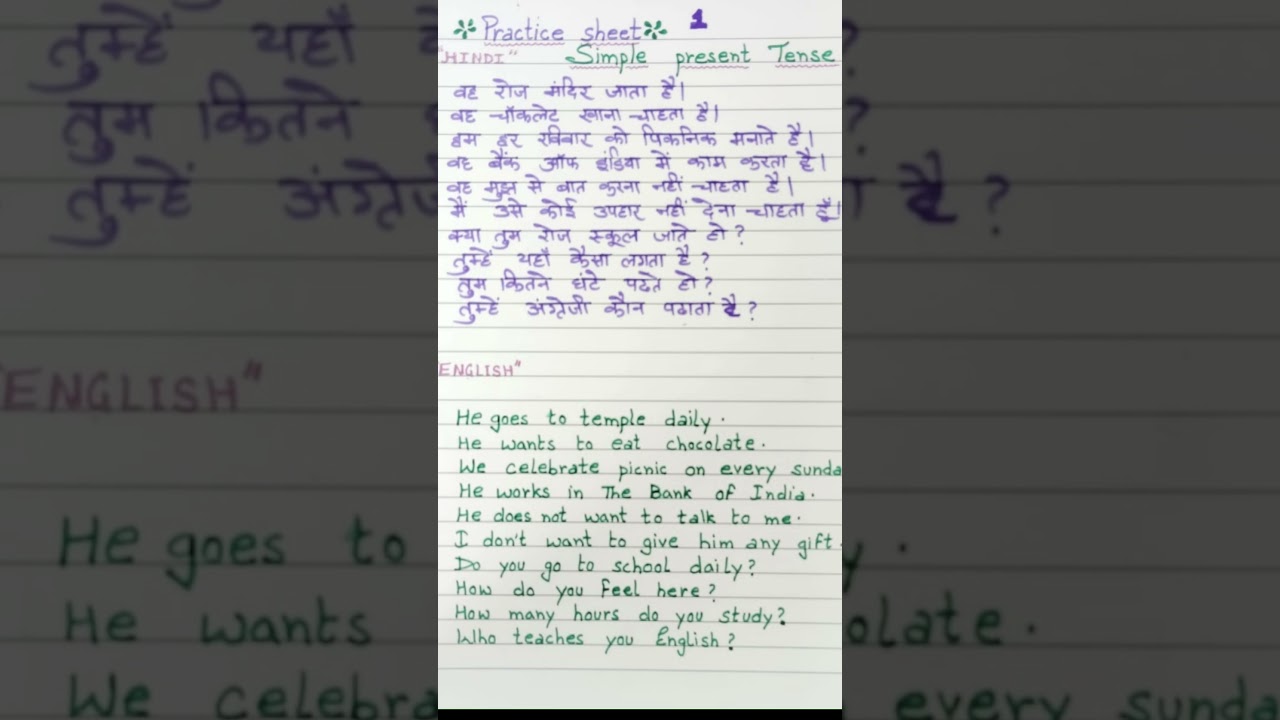 Practice sheet 1
"HINDI" Simple present Tense
वह रोज मंदिर जाता है।
वह चॉकलेट खाना चाहता है।
हम हर रविवार को पिकनिक मनाते है।
वह बैंक ऑफ इंडिया में काम करता है।
वह मुझ से बात करना नहीं चाहता है।
मैं उसे कोई उपहार नहीं देना चाहता हूँ।
क्या तुम रोज स्कूल जाते हो?
तुम्हें यहाँ कैसा लगता है?
तुम कितने घंटे पढते हो?
तुम्हें अंग्रेजी कौन पढाता है?
ENGLISH"
He goes to temple daily.
He wants to eat chocolate.
We celebrate picnic on every sunda
He works in The Bank of India.
He does not want to talk to me.
I don't want to give him any gift.
Do you go to school daily?
How do you feel here?
How many hours do you study?
Who teaches you English?